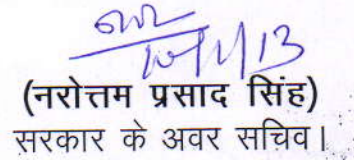 10/1/13
(नरोत्तम प्रसाद सिंह)
सरकार के अवर सचिव।